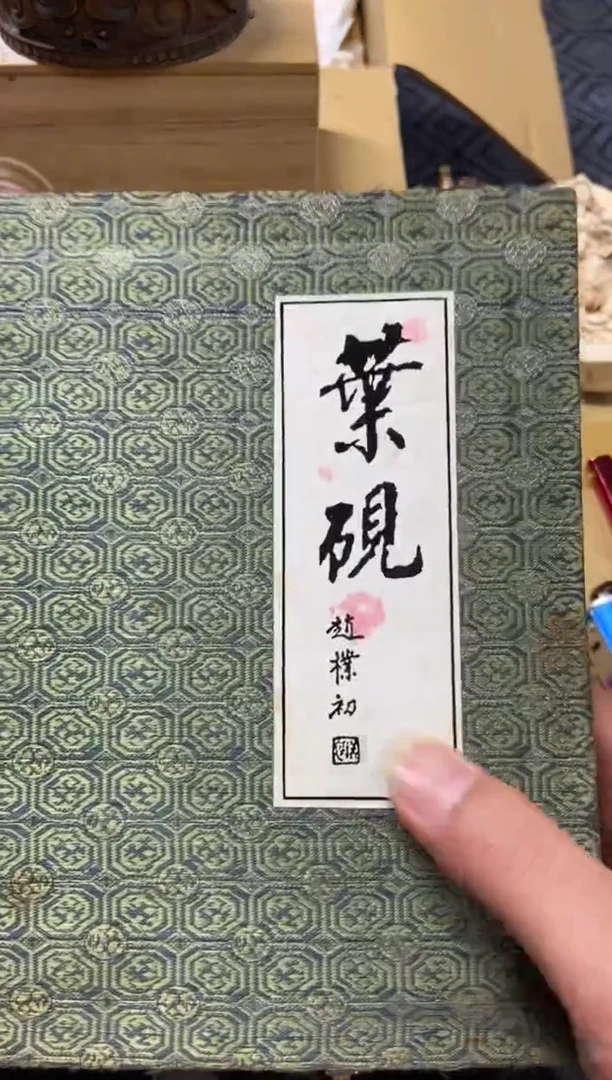 葉硯
趙樸初